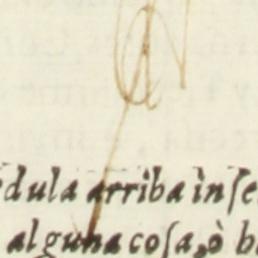 edula arriba inse
alguna cosa, ò b